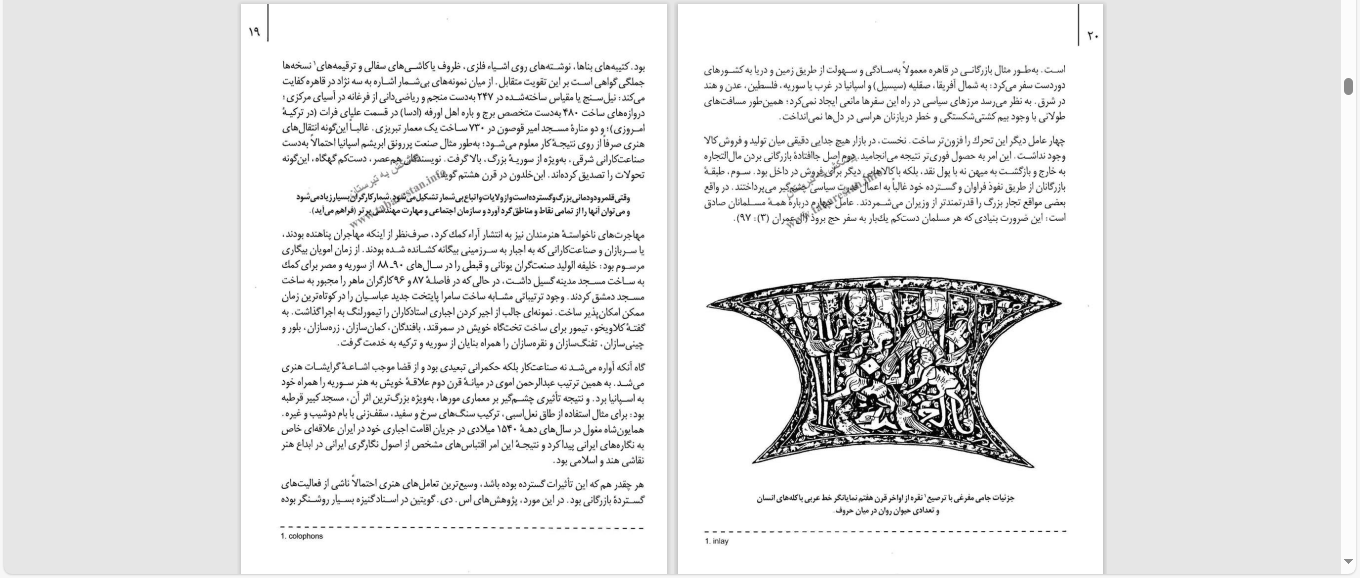 ۱۹
بود. کتیبه‌های بناها، نوشته‌های روی اشیاء فلزی، ظروف یا کاشی‌های سفالی و ترقیمه‌های۱ نسخه‌ها
جملگی گواهی است بر این تقویت متقابل. از میان نمونه‌های بی‌شمار اشاره به سه نژاد در قاهره کفایت
می‌کند: نیل‌سنج یا مقیاس ساخته‌شده در ۲۴۷ به‌دست منجم و ریاضی‌دانی از فرغانه در آسیای مرکزی؛
دروازه‌های ساخت ۴۸۰ به‌دست متخصص برج و باره اهل اورفه (ادسا) در قسمت علیای فرات (در ترکیهٔ
امروزی)؛ و دو منارهٔ مسجد امیر قوصون در ۷۳۰ ساخت یک معمار تبریزی. غالباً این‌گونه انتقال‌های
هنری صرفاً از روی نتیجهٔ کار معلوم می‌شود؛ به‌طور مثال صنعت پررونق ابریشم اسپانیا احتمالاً به‌دست
صناعت‌کارانی شرقی، به‌ویژه از سوریهٔ بزرگ، بالا گرفت. نویسندگان هم‌عصر، دست‌کم گهگاه، این‌گونه
تحولات را تصدیق کرده‌اند. ابن‌خلدون در قرن هشتم گوید:
وقتی قلمرو دودمانی بزرگ و گسترده است و از ولایات و اتباع بی‌شمار تشکیل می‌شود، شمار کارگران بسیار زیاد می‌شود
و می‌توان آنها را از تمامی نقاط و مناطق گرد آورد و سازمان اجتماعی و مهارت مهندسی برتر (فراهم می‌آید).
مهاجرت‌های ناخواستهٔ هنرمندان نیز به انتشار آراء کمک کرد، صرف‌نظر از اینکه مهاجران پناهنده بودند،
یا سربازان و صناعت‌کارانی که به اجبار به سرزمینی بیگانه کشانده شده بودند. از زمان امویان بیگاری
مرسوم بود: خلیفه الولید صنعت‌گران یونانی و قبطی را در سال‌های ۹۰ـ۸۸ از سوریه و مصر برای کمک
به ساخت مسجد مدینه گسیل داشت، در حالی که در فاصلهٔ ۸۷ و ۹۶ کارگران ماهر را مجبور به ساخت
مسجد دمشق کردند. وجود ترتیباتی مشابه ساخت سامرا پایتخت جدید عباسیان را در کوتاه‌ترین زمان
ممکن امکان‌پذیر ساخت. نمونه‌ای جالب از اجیر کردن اجباری استادکاران را تیمورلنگ به اجرا گذاشت. به
گفتهٔ کلاویخو، تیمور برای ساخت تختگاه خویش در سمرقند، بافندگان، کمان‌سازان، زره‌سازان، بلور و
چینی‌سازان، تفنگ‌سازان و نقره‌سازان را همراه بنایان از سوریه و ترکیه به خدمت گرفت.
گاه آنکه آواره می‌شد نه صناعت‌کار بلکه حکمرانی تبعیدی بود و از قضا موجب اشاعهٔ گرایشات هنری
می‌شد. به همین ترتیب عبدالرحمن اموی در میانهٔ قرن دوم علاقهٔ خویش به هنر سوریه را همراه خود
به اسپانیا برد. و نتیجه تأثیری چشم‌گیر بر معماری مورها، به‌ویژه بزرگ‌ترین اثر آن، مسجد کبیر قرطبه
بود: برای مثال استفاده از طاق نعل‌اسبی، ترکیب سنگ‌های سرخ و سفید، سقف‌زنی با بام دوشیب و غیره.
همایون‌شاه مغول در سال‌های دههٔ ۱۵۴۰ میلادی در جریان اقامت اجباری خود در ایران علاقه‌ای خاص
به نگاره‌های ایرانی پیدا کرد و نتیجهٔ این امر اقتباس‌های مشخص از اصول نگارگری ایرانی در ابداع هنر
نقاشی هند و اسلامی بود.
هر چقدر هم که این تأثیرات گسترده بوده باشد، وسیع‌ترین تعامل‌های هنری احتمالاً ناشی از فعالیت‌های
گستردهٔ بازرگانی بود. در این مورد، پژوهش‌های اس. دی. گویتین در اسناد گنیزه بسیار روشنگر بوده
1. colophons
۲۰
است. به‌طور مثال بازرگانی در قاهره معمولاً به‌سادگی و سهولت از طریق زمین و دریا به کشورهای
دوردست سفر می‌کرد: به شمال آفریقا، صقلیه (سیسیل) و اسپانیا در غرب یا سوریه، فلسطین، عدن و هند
در شرق. به نظر می‌رسد مرزهای سیاسی در راه این سفرها مانعی ایجاد نمی‌کرد؛ همین‌طور مسافت‌های
طولانی با وجود بیم کشتی‌شکستگی و خطر دریازنان هراسی در دل‌ها نمی‌انداخت.
چهار عامل دیگر این تحرک را فزون‌تر ساخت. نخست، در بازار هیچ جدایی دقیقی میان تولید و فروش کالا
وجود نداشت. این امر به حصول فوری‌تر نتیجه می‌انجامید. دوم اصل جاافتادهٔ بازرگانی بردن مال‌التجاره
به خارج و بازگشت به میهن نه با پول نقد، بلکه با کالاهایی دیگر برای فروش در داخل بود. سوم، طبقهٔ
بازرگانان از طریق نفوذ فراوان و گسترده خود غالباً به اعمال قدرت سیاسی چشم‌گیر می‌پرداختند. در واقع
بعضی مواقع تجار بزرگ را قدرتمندتر از وزیران می‌شمردند. عامل چهارم دربارهٔ همهٔ مسلمانان صادق
است: این ضرورت بنیادی که هر مسلمان دست‌کم یک‌بار به سفر حج برود (آل‌عمران (۳): ۹۷).
جزئیات جامی مفرغی با ترصیع۱ نقره از اواخر قرن هفتم نمایانگر خط عربی با کله‌های انسان
و تعدادی حیوان روان در میان حروف.
1. inlay